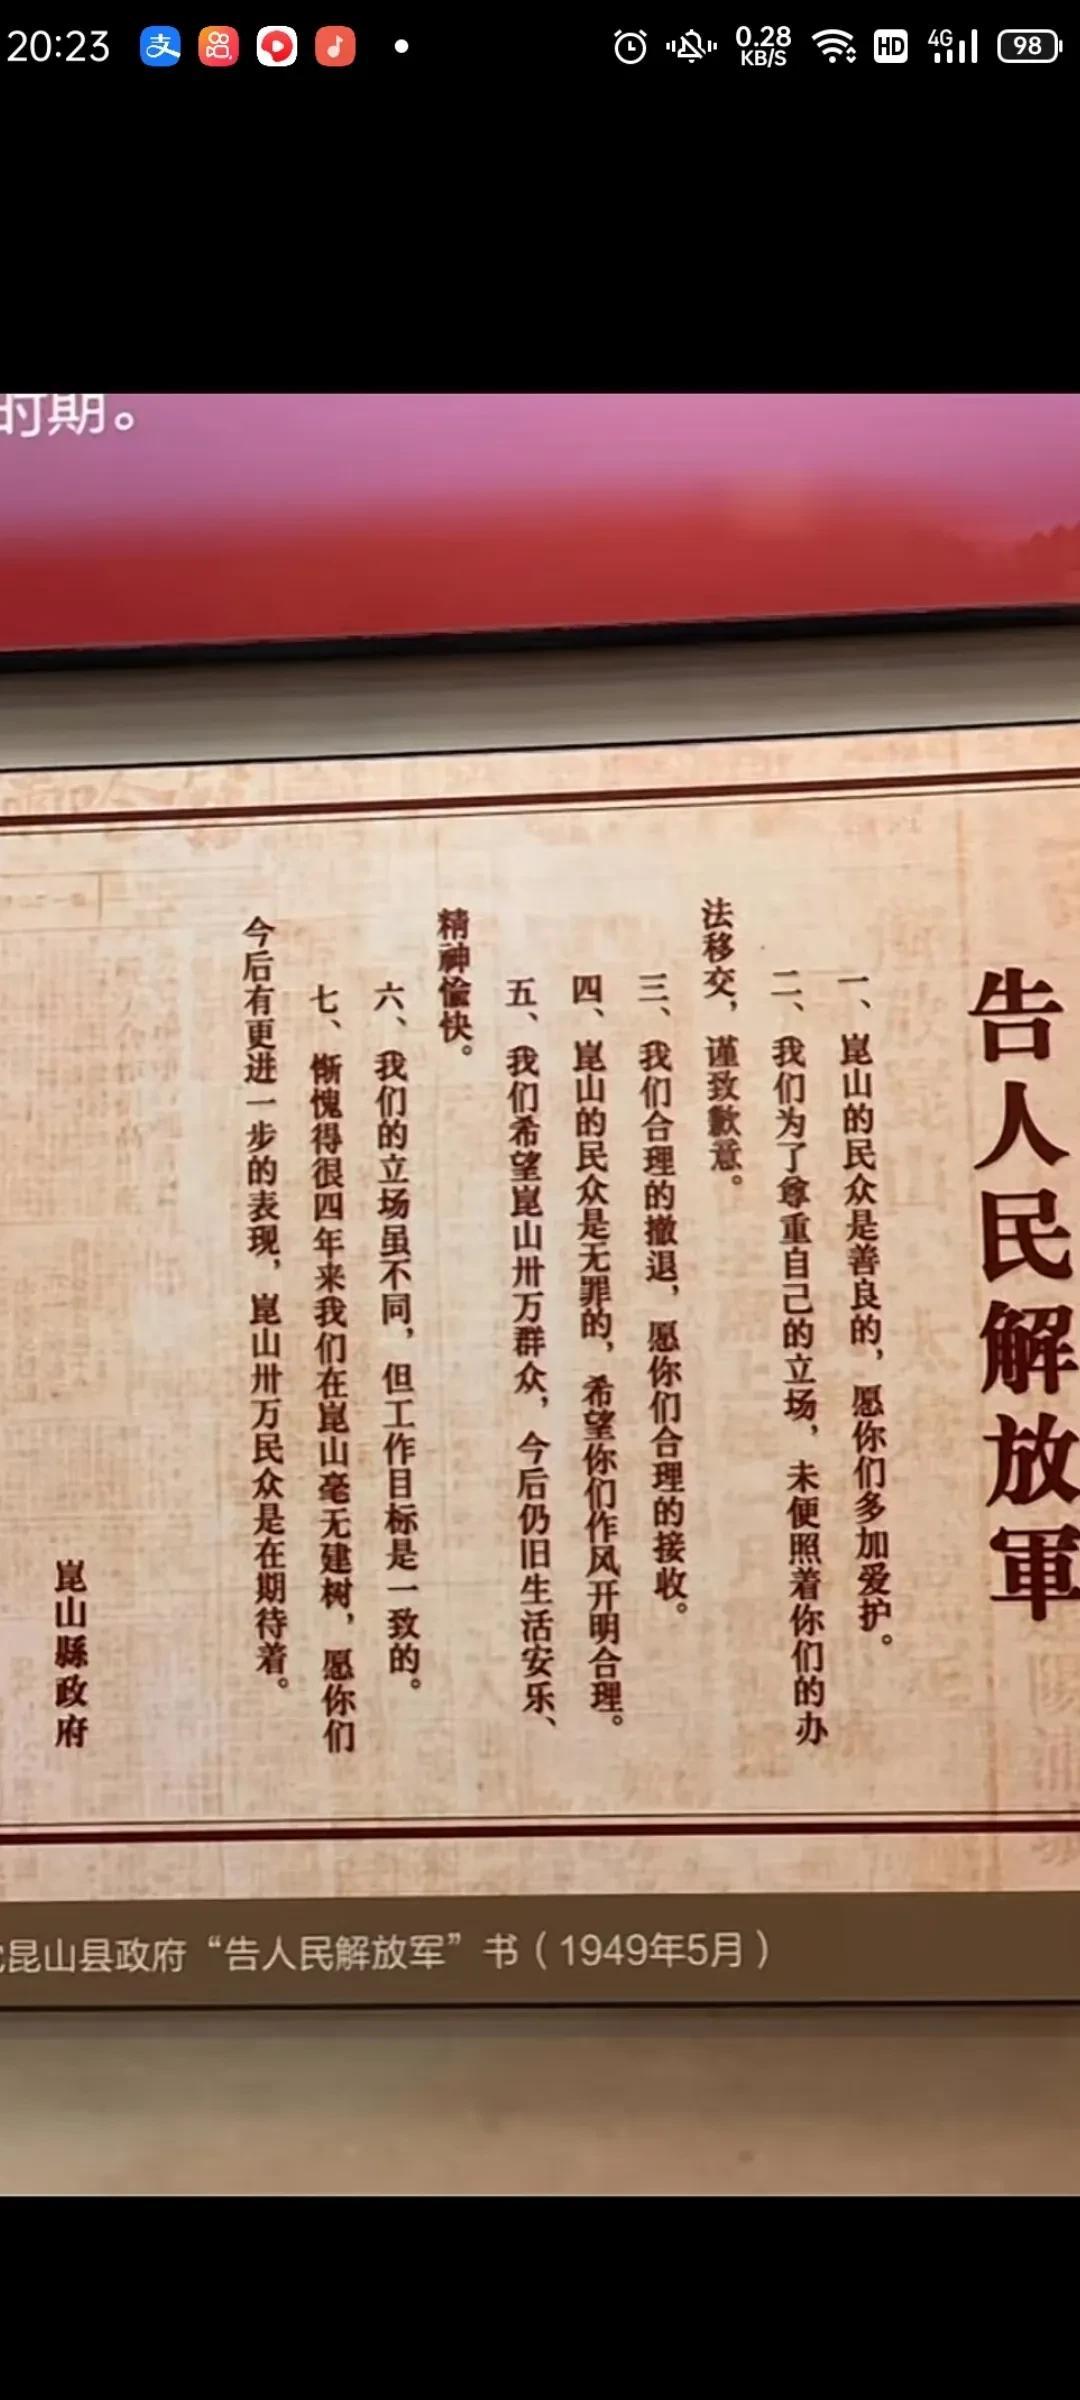 20:23
支
0.28
KB/S
HD
4G
98
时期。
告人民解放軍
一、崑山的民众是善良的，愿你们多加爱护。
二、我们为了尊重自己的立场，未便照着你们的办
法移交，谨致歉意。
三、我们合理的撤退，愿你们合理的接收。
四、崑山的民众是无罪的，希望你们作风开明合理。
五、我们希望崑山卅万群众，今后仍旧生活安乐、
精神愉快。
六、我们的立场虽不同，但工作目标是一致的。
七、惭愧得很四年来我们在崑山毫无建树，愿你们
今后有更进一步的表现，崑山卅万民众是在期待着。
崑山縣政府
昆山县政府“告人民解放军”书（1949年5月）